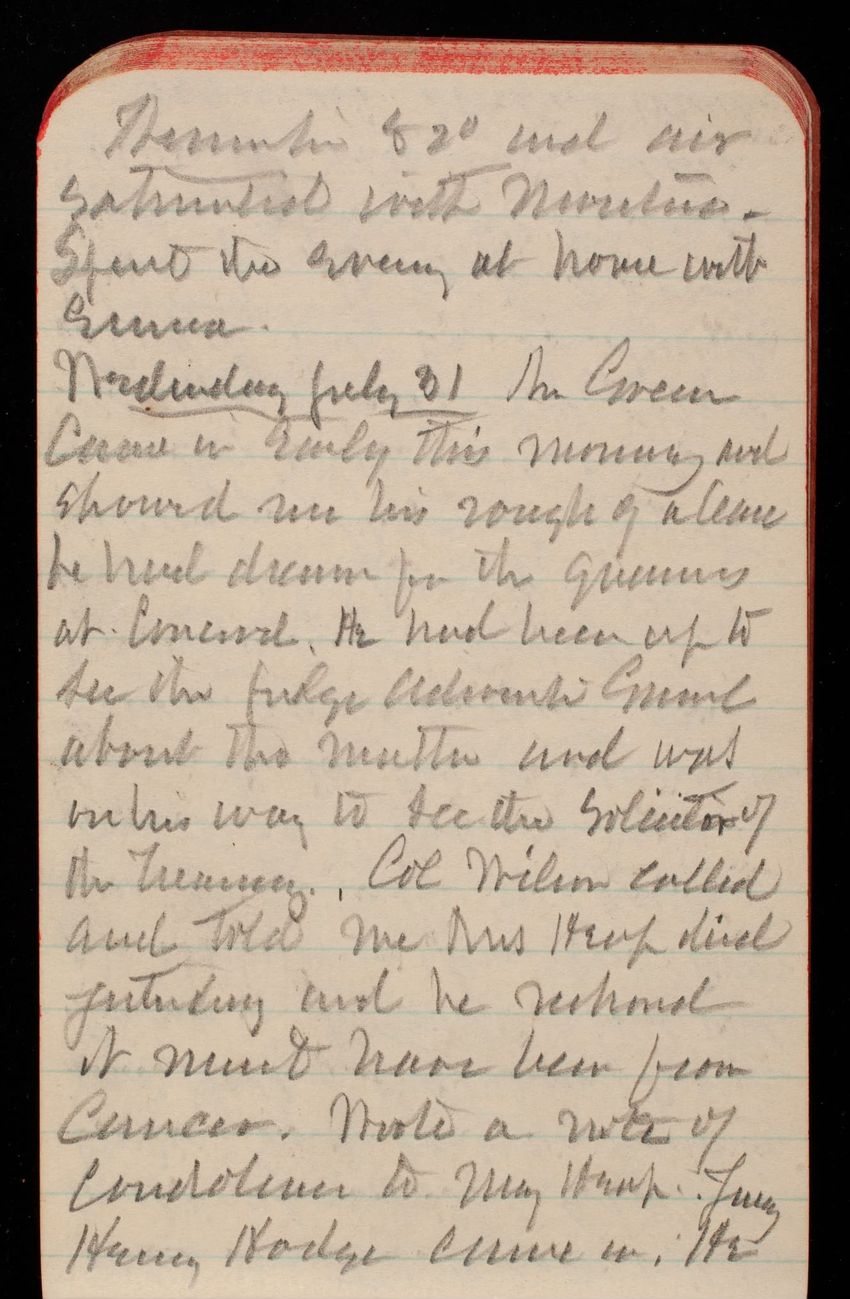 Thermometer 82° and air
saturated with moisture.
Spent the evening at home with
Emma.
Wednesday July 31 Mr Green
Came in early this morning and
showed me his rough of a lease
he had drawn for the quarries
at Concord. He had been up to
see the Judge Advocate Genl
about the matter and was
on his way to see the Solicitor of
the Treasury. Col Wilson called
and told me Mrs Heap died
yesterday and he reckoned
it must have been from
Cancer. Wrote a note of
Condolence to May Heap.
Henry Hodge came in. He